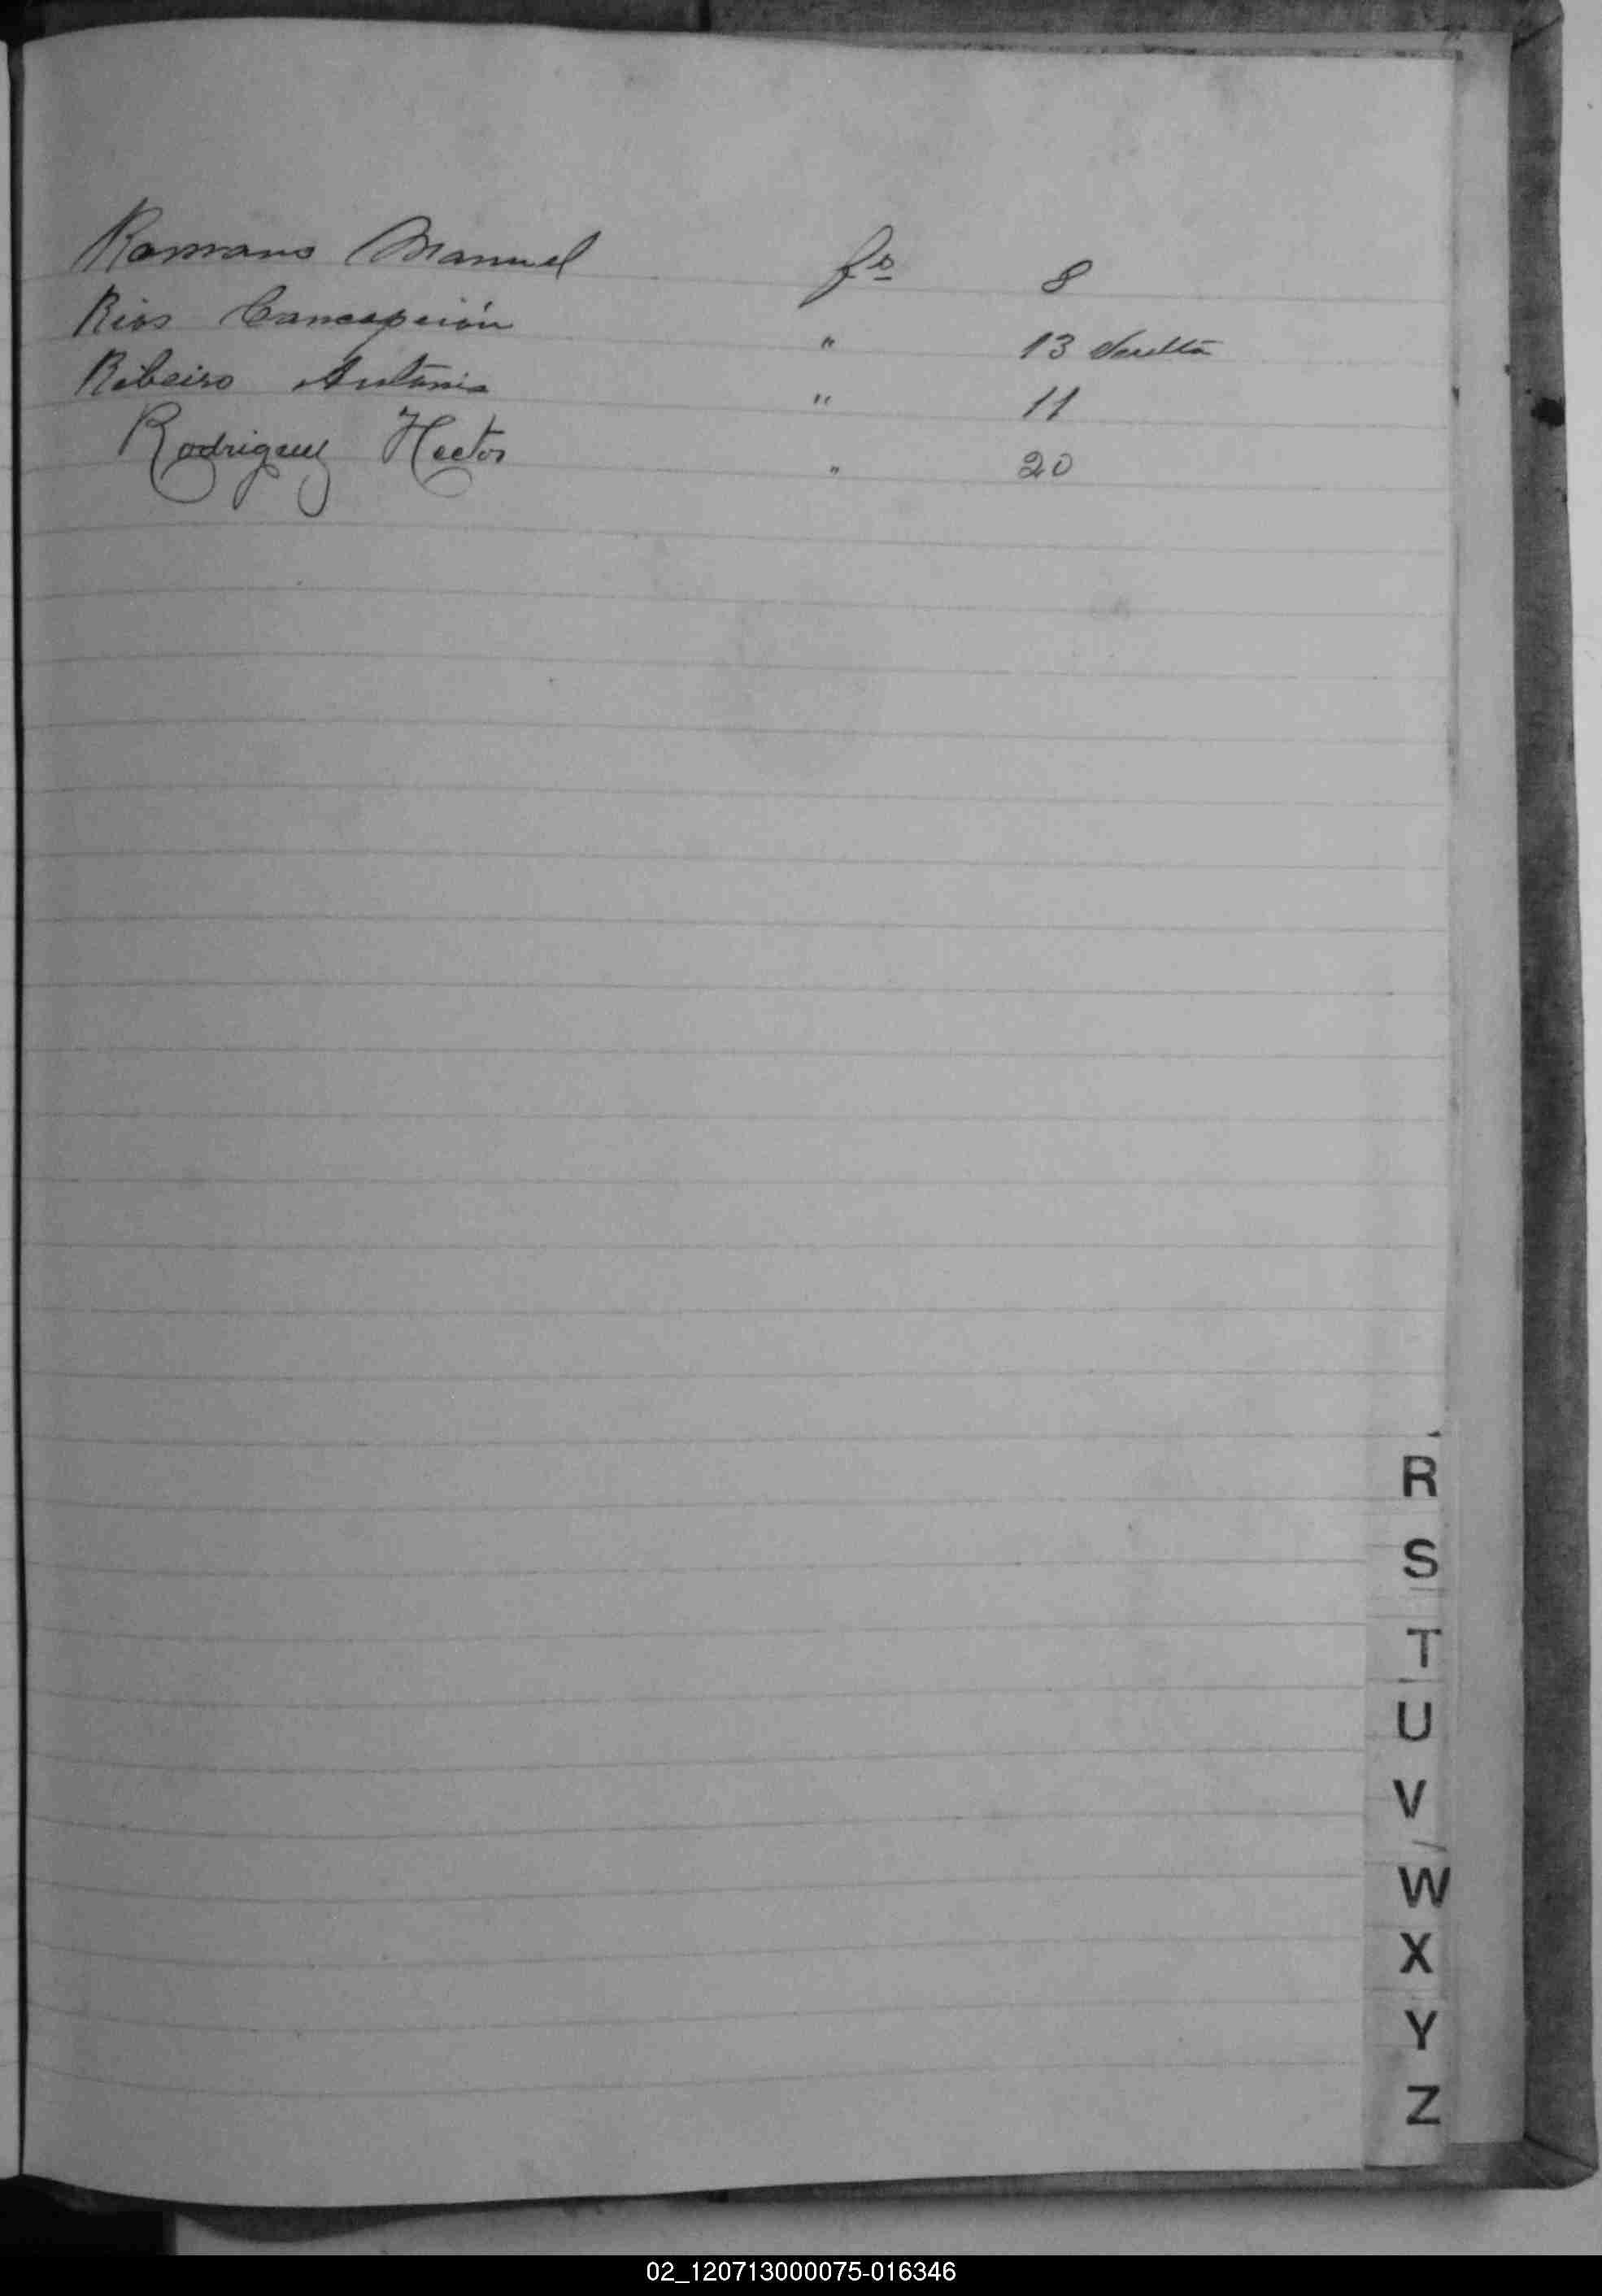 Romano Manuel fo 8
Rios Concepción " 13 Vuelta
Ribeiro Antonio " 11
Rodriguez Hector " 20
R
S
T
U
V
W
X
Y
Z
02_120713000075-016346